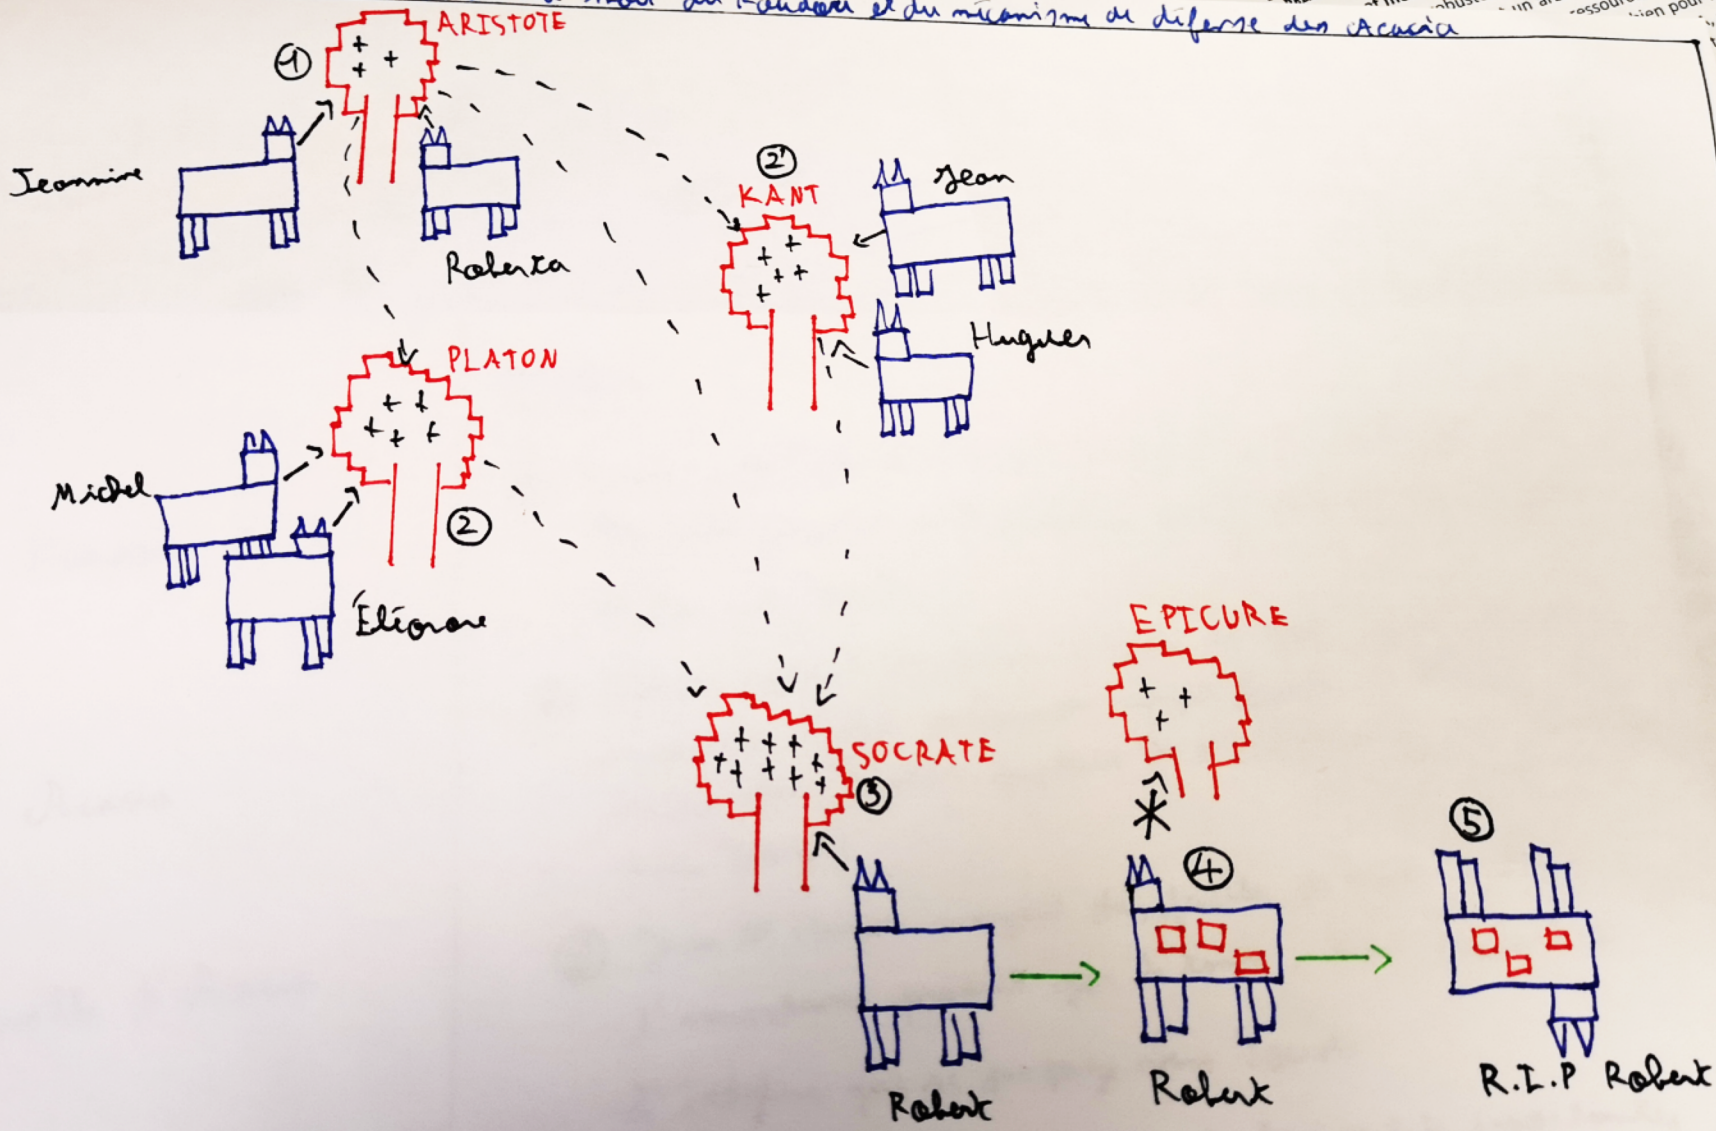 du Koudou et du mécanisme de défense des Acacia
ARISTOTE
1
Jeannine
Roberta
2'
KANT
Jean
Hugues
PLATON
Michel
2
Éléonore
EPICURE
SOCRATE
3
4
5
Robert
Robert
R.I.P Robert